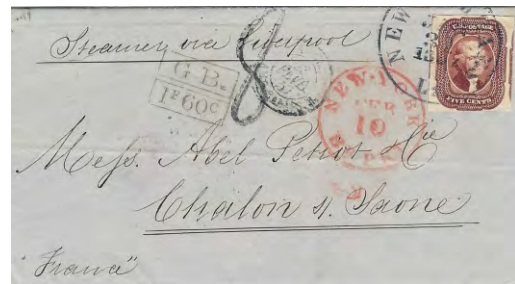 Steamer via Liverpool
G B.
1F 60c
8
NEW
U.S. POSTAGE
FIVE CENTS
NEW-YORK
10
Mess. Abel Petiot & Cie
Chalon s. Saone
"France"